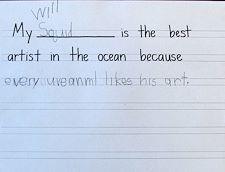 Will
My Squid is the best
artist in the ocean because
every likes his art.